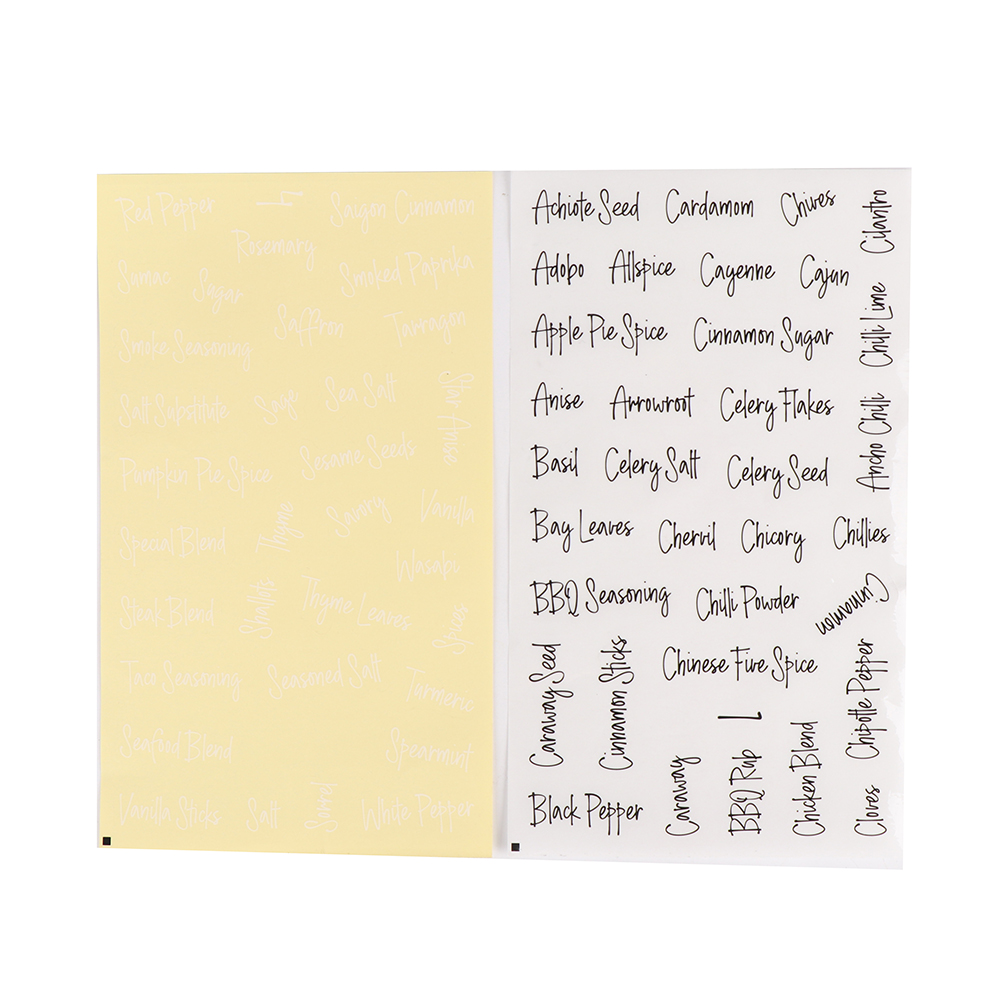 Red Pepper
Saigon Cinnamon
Rosemary
Sumac
Sugar
Smoked Paprika
Saffron
Tarragon
Smoke Seasoning
Salt Substitute
Sage
Sea Salt
Star Anise
Pumpkin Pie Spice
Sesame Seeds
Special Blend
Thyme
Savory
Vanilla
Wasabi
Steak Blend
Shallots
Thyme Leaves
Spices
Taco Seasoning
Seasoned Salt
Turmeric
Seafood Blend
Spearmint
Vanilla Sticks
Salt
Sorrel
White Pepper
Achiote Seed
Cardamom
Chives
Cilantro
Adobo
Allspice
Cayenne
Cajun
Chilli Lime
Apple Pie Spice
Cinnamon Sugar
Anise
Arrowroot
Celery Flakes
Ancho Chilli
Basil
Celery Salt
Celery Seed
Bay Leaves
Chervil
Chicory
Chillies
BBQ Seasoning
Chilli Powder
Cinnamon
Caraway Seed
Cinnamon Sticks
Chinese Five Spice
Chipotle Pepper
L
Black Pepper
Caraway
BBQ Rub
Chicken Blend
Cloves